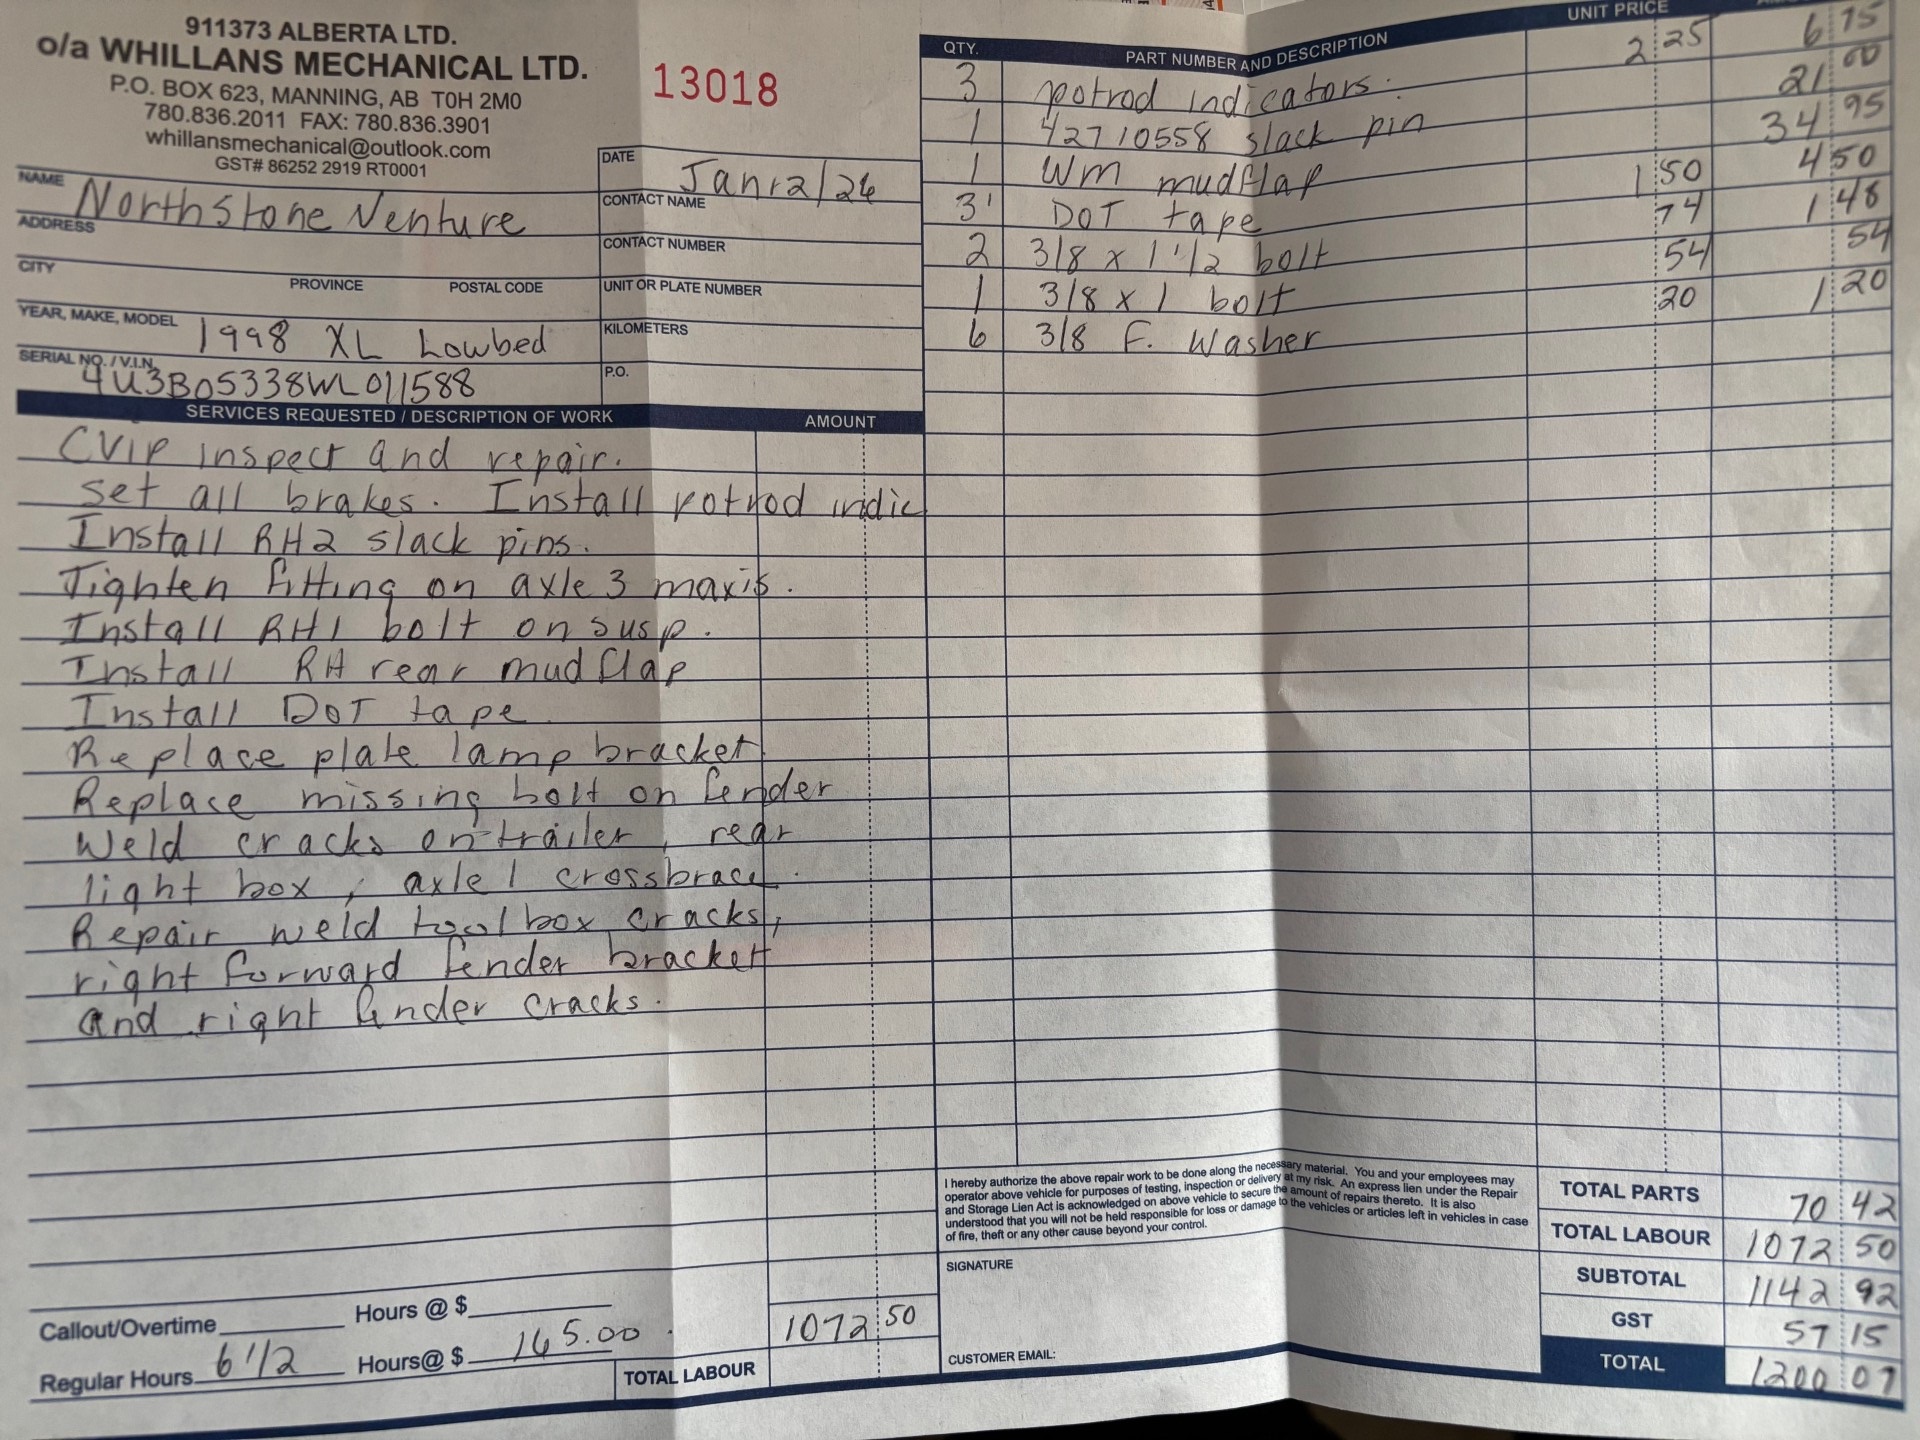 911373 ALBERTA LTD.
o/a WHILLANS MECHANICAL LTD.
P.O. BOX 623, MANNING, AB T0H 2M0
780.836.2011 FAX: 780.836.3901
whillansmechanical@outlook.com
GST# 86252 2919 RT0001
13018
DATE Jan 12/26
NAME Northstone Venture
CONTACT NAME
ADDRESS
CONTACT NUMBER
CITY PROVINCE POSTAL CODE
UNIT OR PLATE NUMBER
YEAR, MAKE, MODEL 1998 XL Lowbed
KILOMETERS
SERIAL NO. / V.I.N. 4U3B05338WL011588
P.O.
SERVICES REQUESTED / DESCRIPTION OF WORK AMOUNT
CVIP inspect and repair.
Set all brakes. Install rotrod indic
Install RH2 slack pins.
Tighten fitting on axle 3 maxis.
Install RH1 bolt on susp.
Install RH rear mudflap
Install DOT tape
Replace plate lamp bracket
Replace missing bolt on fender
Weld cracks on trailer, rear
light box, axle 1 crossbrace.
Repair weld toolbox cracks,
right forward fender bracket
and right fender cracks.
Callout/Overtime Hours @ $
Regular Hours 6 1/2 Hours@ $ 165.00 1072 50
TOTAL LABOUR
QTY. PART NUMBER AND DESCRIPTION UNIT PRICE
3 potrod indicators. 2 25 6 75
1 42710558 slack pin 21 00
1 WM mudflap 34 95
3' DOT tape 1 50 4 50
2 3/8 x 1 1/2 bolt 74 1 48
1 3/8 x 1 bolt 54 54
6 3/8 F. Washer 20 1 20
I hereby authorize the above repair work to be done along the necessary material. You and your employees may
operator above vehicle for purposes of testing, inspection or delivery at my risk. An express lien under the Repair
and Storage Lien Act is acknowledged on above vehicle to secure the amount of repairs thereto. It is also
understood that you will not be held responsible for loss or damage to the vehicles or articles left in vehicles in case
of fire, theft or any other cause beyond your control.
SIGNATURE
CUSTOMER EMAIL:
TOTAL PARTS 70 42
TOTAL LABOUR 1072 50
SUBTOTAL 1142 92
GST 57 15
TOTAL 1200 07